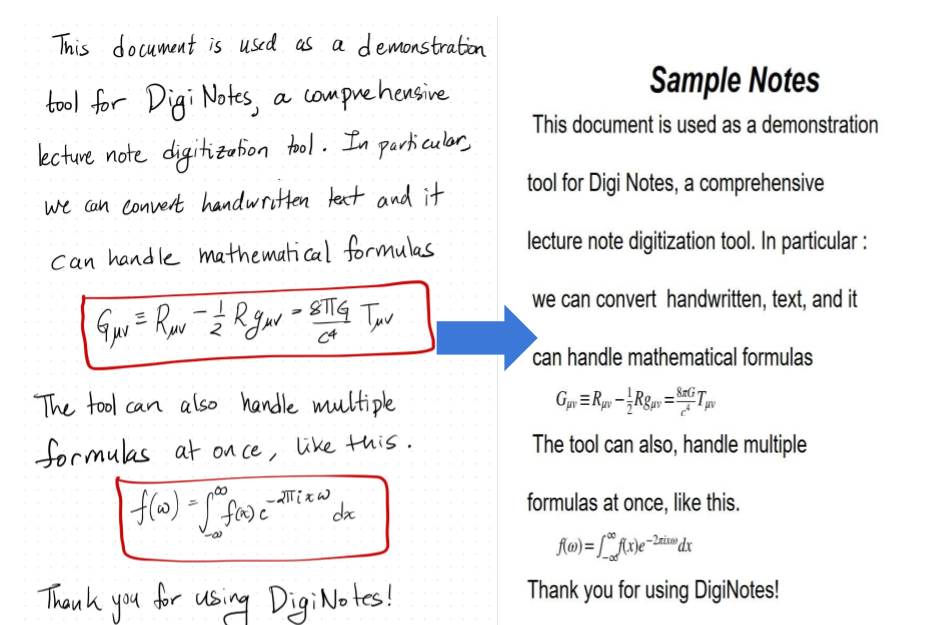 This document is used as a demonstration
tool for Digi Notes, a comprehensive
lecture note digitization tool. In particular,
we can convert handwritten text and it
can handle mathematical formulas
G_μν ≡ R_μν − 1/2 R g_μν = 8πG/c⁴ T_μν
The tool can also handle multiple
formulas at once, like this.
f(ω) = ∫_{-∞}^{∞} f(x) e^{-2πixω} dx
Thank you for using DigiNotes!
Sample Notes
This document is used as a demonstration
tool for Digi Notes, a comprehensive
lecture note digitization tool. In particular :
we can convert handwritten, text, and it
can handle mathematical formulas
G_μν ≡ R_μν − 1/2 Rg_μν = 8πG/c⁴ T_μν
The tool can also, handle multiple
formulas at once, like this.
f(ω) = ∫_{-∞}^{∞} f(x)e^{-2πixω} dx
Thank you for using DigiNotes!